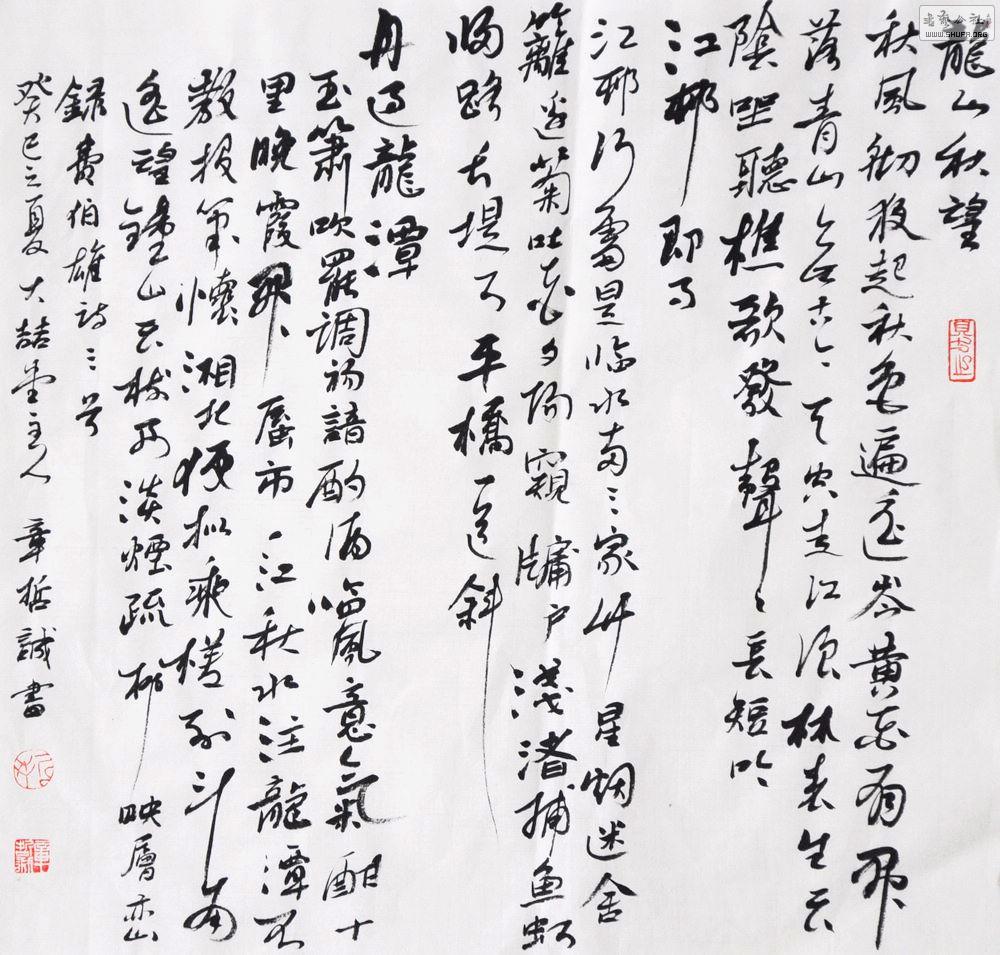 龍山秋望
秋風初夜起秋色遍遙岑黄花有開
落青山無古今天空走江浪林表生雲
陰坐聽樵歌發聲聲長短吟
江邨即事
江邨何處是臨水兩三家竹烟迷舍
籬邊菊吐花夕陽窺牖戶淺渚捕魚蝦
歸路長堤下平橋一道斜
舟過龍潭
玉簫吹罷調初諳酌酒臨風意氣酣十
里晚霞開蜃市一江秋水注龍潭不
教投筆懷湘北便擬乘槎到斗南
遙望鍾山雲樹淡煙疏柳映層巒
錄費伯雄詩三首
癸巳立夏大喆堂主人章哲誠書
书法公社
WWW.SHUFA.ORG